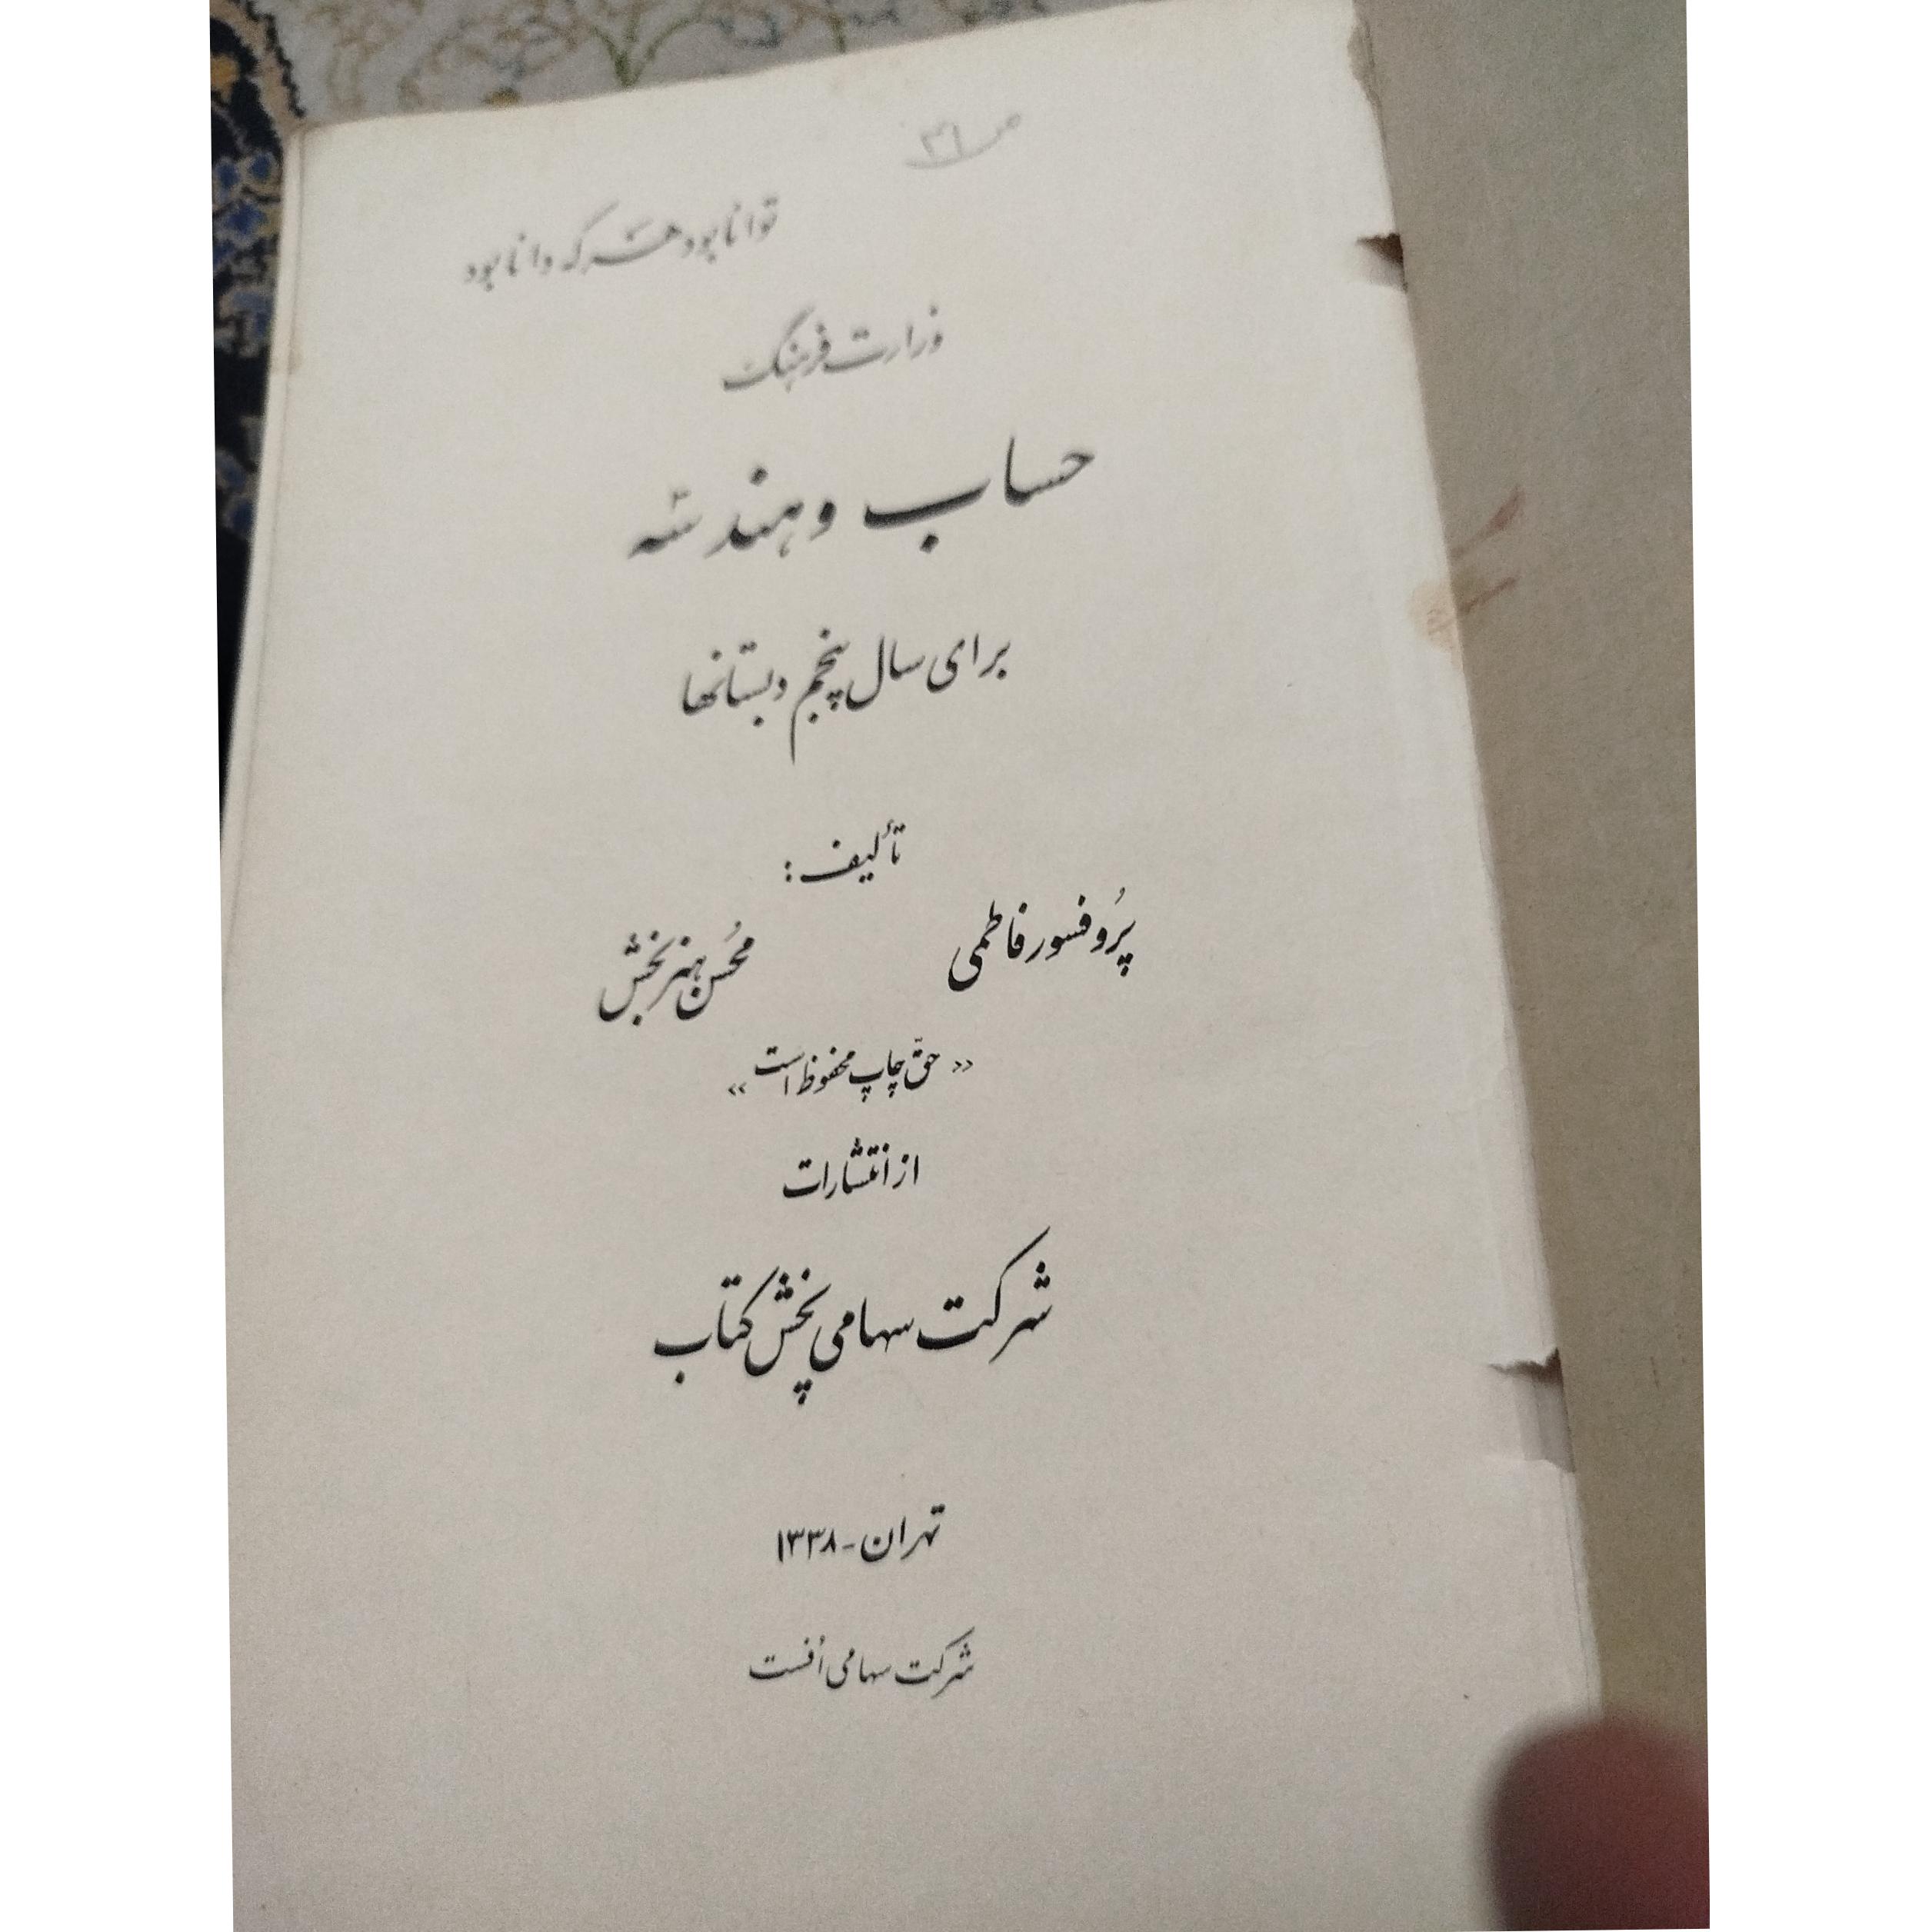 توانا بود هر که دانا بود
وزارت فرهنگ
حساب و هندسه
برای سال پنجم دبستانها
تألیف:
پرُوفسور فاطمی محُسن هنربخش
«حقّ چاپ محفوظ است»
از انتشارات
شرکت سهامی پخش کتاب
تهران-۱۳۳۸
شرکت سهامی اُفست